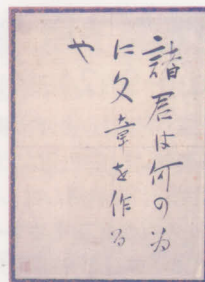 諸君は何の為
に文章を作る
や